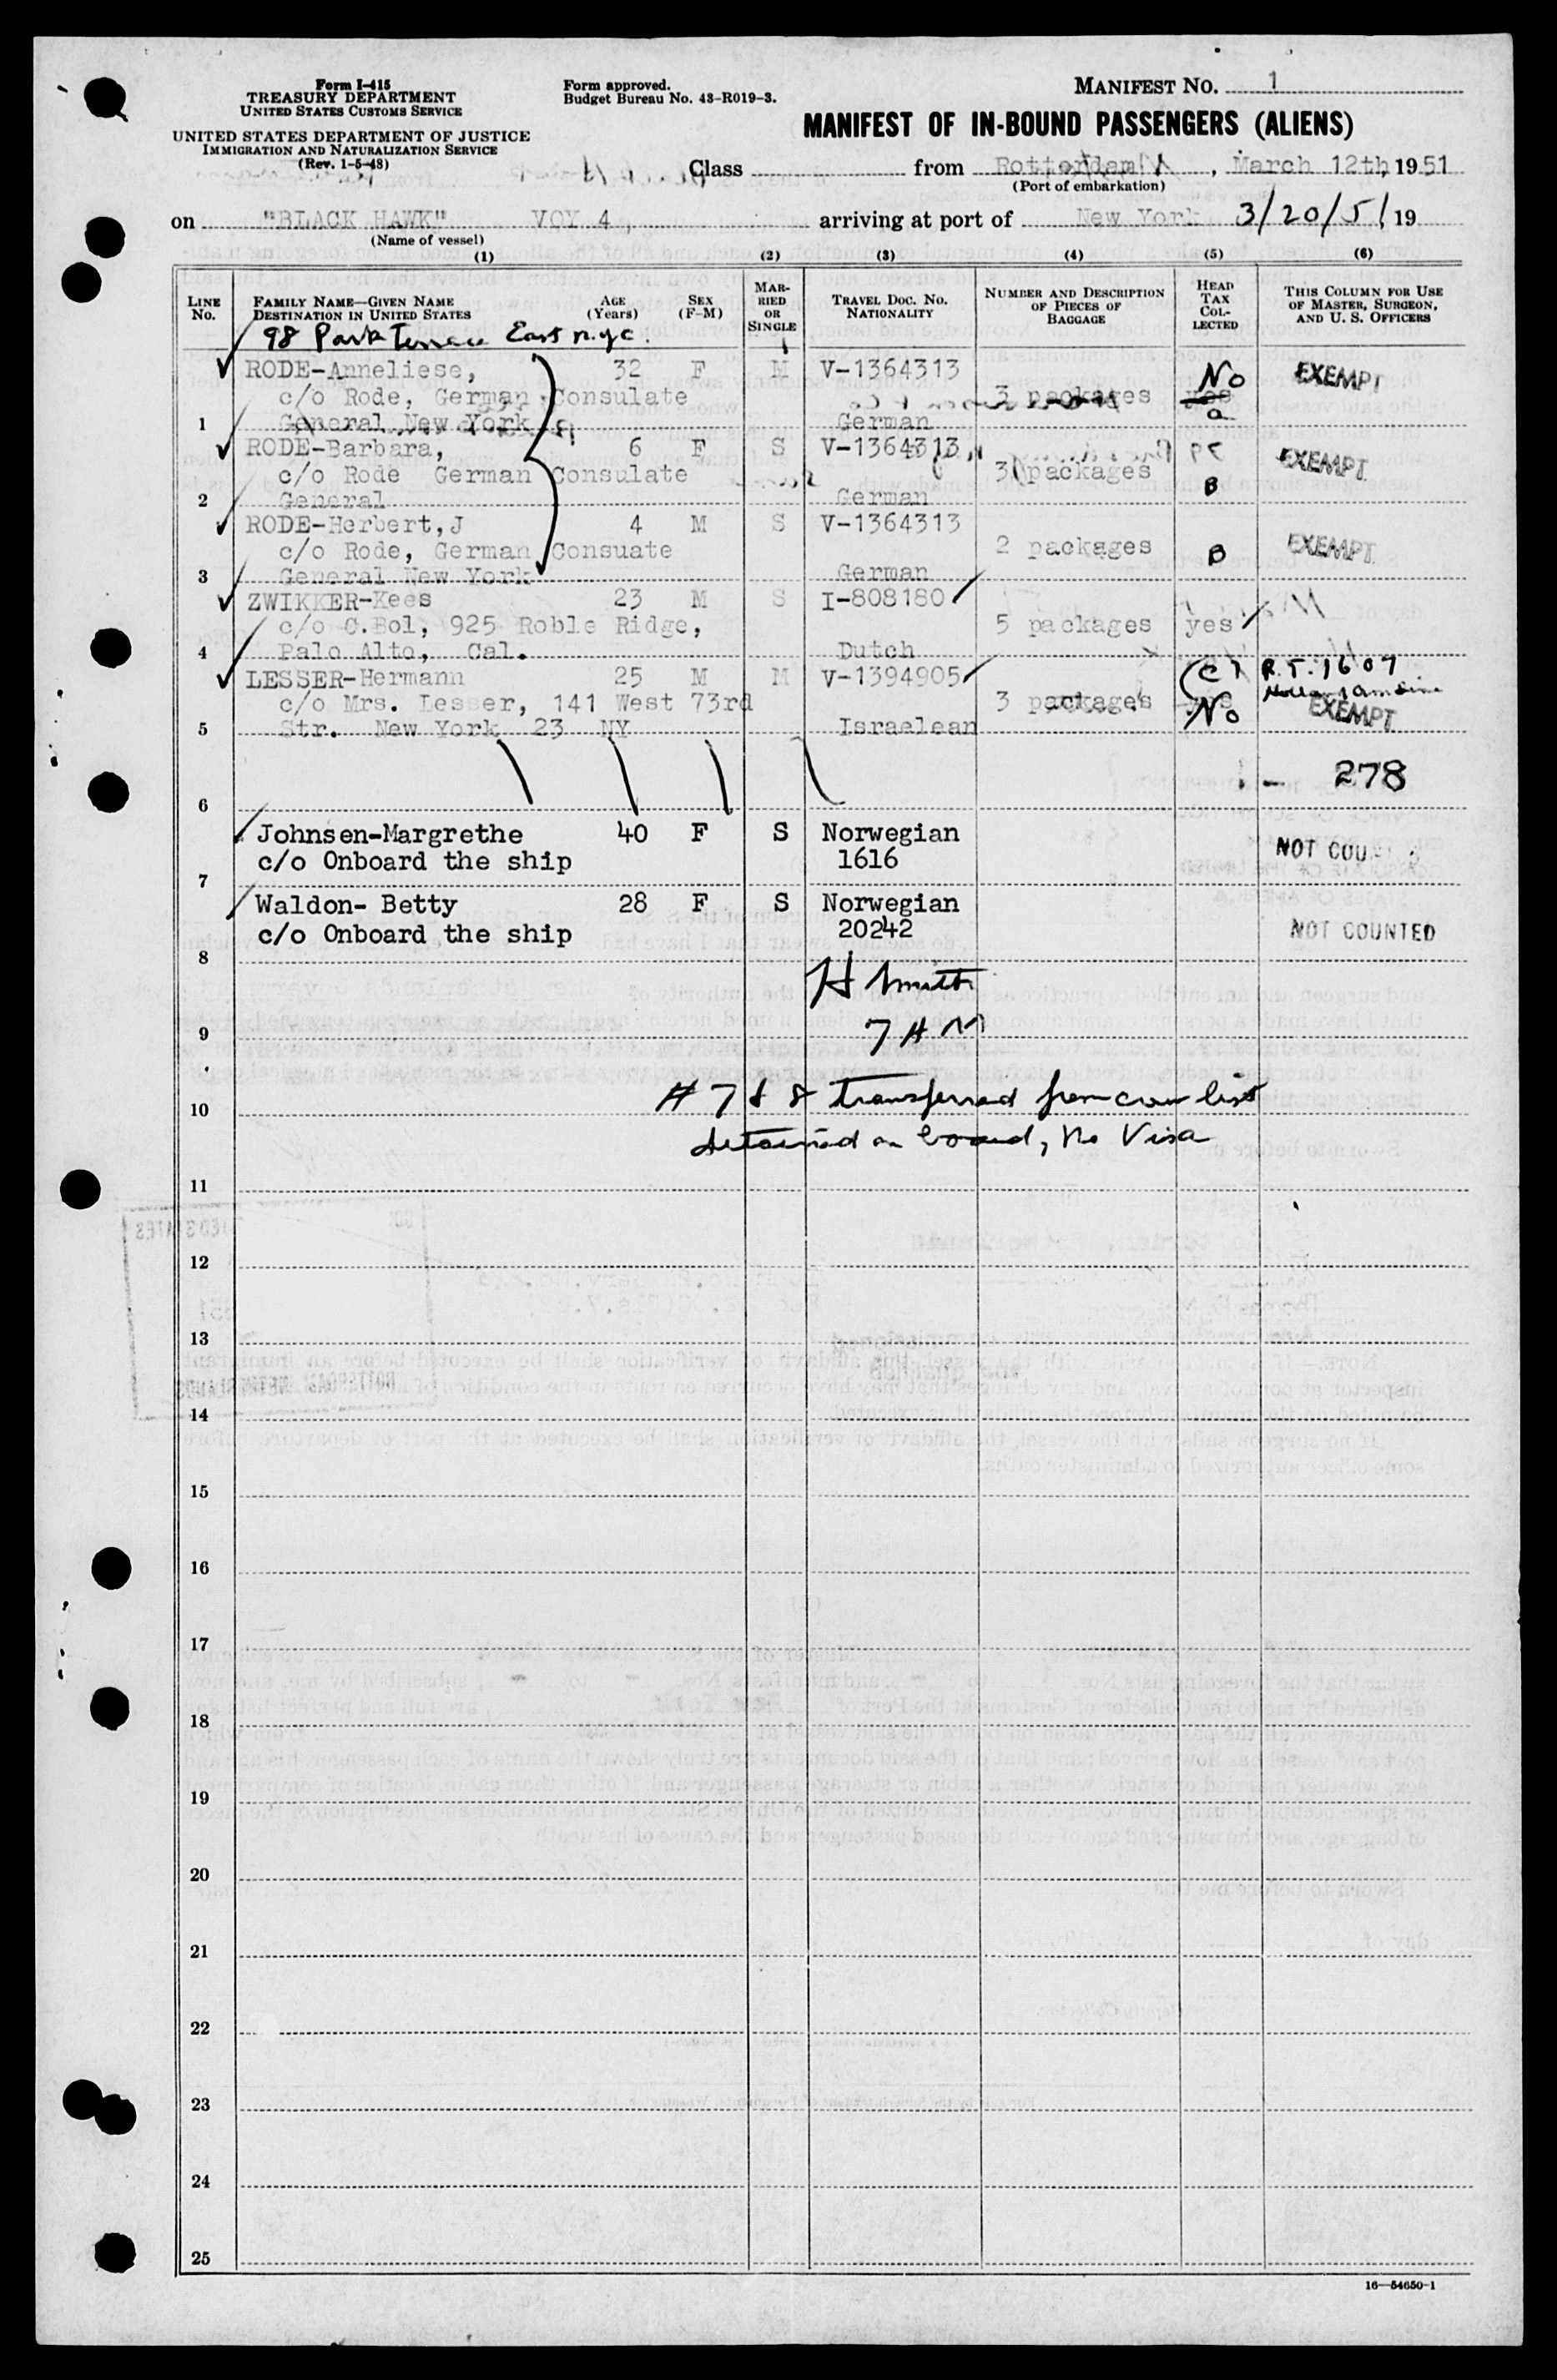 Form I-415
TREASURY DEPARTMENT
UNITED STATES CUSTOMS SERVICE
UNITED STATES DEPARTMENT OF JUSTICE
IMMIGRATION AND NATURALIZATION SERVICE
(Rev. 1-5-48)
Form approved.
Budget Bureau No. 43-R019-3.
MANIFEST NO. 1
MANIFEST OF IN-BOUND PASSENGERS (ALIENS)
Class from Rotterdam , March 12th, 1951
(Port of embarkation)
on "BLACK HAWK" VOY 4, arriving at port of New York 3/20/51 19
(Name of vessel)
(1) (2) (3) (4) (5) (6)
LINE No. FAMILY NAME—GIVEN NAME DESTINATION IN UNITED STATES AGE (Years) SEX (F-M) MARRIED OR SINGLE TRAVEL DOC. NO. NATIONALITY NUMBER AND DESCRIPTION OF PIECES OF BAGGAGE HEAD TAX COLLECTED THIS COLUMN FOR USE OF MASTER, SURGEON, AND U. S. OFFICERS
98 Park Terrace East n.y.c.
RODE-Anneliese, 32 F M V-1364313 No EXEMPT
c/o Rode, German Consulate 3 packages yes
1 General New York German a
RODE-Barbara, 6 F S V-1364313 EXEMPT
c/o Rode German Consulate 3 packages B
2 General German
RODE-Herbert,J 4 M S V-1364313
c/o Rode, German Consuate 2 packages B EXEMPT
3 General New York German
ZWIKKER-Kees 23 M S I-808180
c/o C.Bol, 925 Roble Ridge, 5 packages yes
4 Palo Alto, Cal. Dutch
LESSER-Hermann 25 M M V-1394905 R.T. 1607
c/o Mrs. Lesser, 141 West 73rd 3 packages yes No EXEMPT
5 Str. New York 23 NY Israelean
6 - 278
Johnsen-Margrethe 40 F S Norwegian NOT COU
c/o Onboard the ship 1616
7
Waldon- Betty 28 F S Norwegian
c/o Onboard the ship 20242 NOT COUNTED
8
H Smith
9 7 A M
10 # 7 & 8 transferred from crew list
detained on board, no Visa
11
12
13
14
15
16
17
18
19
20
21
22
23
24
25
16—54650-1